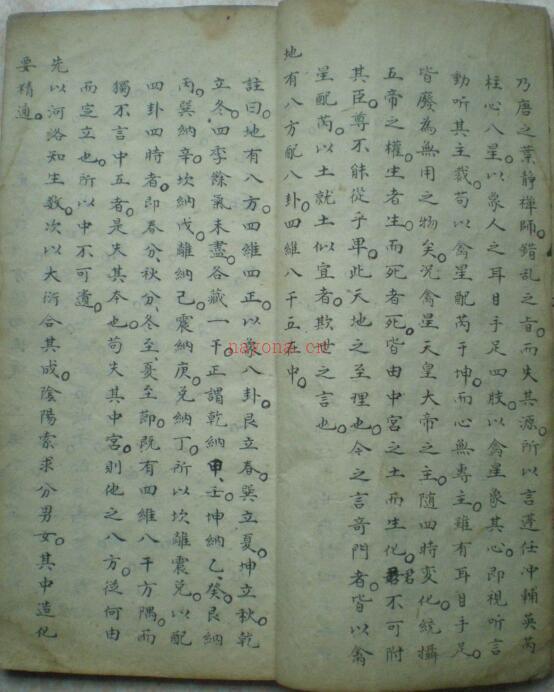 乃唐之葉靜禪師。錯亂之旨。而失其源。所以言蓬任冲輔英芮
柱心八星。以象人之耳目手足四肢。以禽星象其心。即視听言
動听其主裁。苟以禽星配芮于坤。而心無專主。雖有耳目手足。
皆廢為無用之物矣。况禽星天皇大帝之主。随四時变化。統攝
五帝之權。生者生。而死者死。皆由中宮之土而生化。君不可附
其臣。尊不能從乎卑。此天地之至理也。今之言奇門者。皆以禽
星配芮。以土就土似宜者。欺世之言也。
地有八方配八卦。四維八干五在中。
註曰。地有八方。四維四正。以為八卦。艮立春。巽立夏。坤立秋。乾
立冬。四季餘氣未盡。各藏一干。正謂乾納甲、壬。坤納乙、癸。艮納
丙。巽納辛。坎納戊。離納己。震納庚。兑納丁。所以坎離震兑。以配
四卦四時者。即春分、秋分、冬至、夏至節。既有四維八干方隅。而
獨不言中五者。是失其本也。苟失其中宮。則他之八方。從何由
而定立也。所以中不可遺。
先以河洛知生数。次以大衍合其成。陰陽索求分男女。其中造化
要精通。
nayona.cn